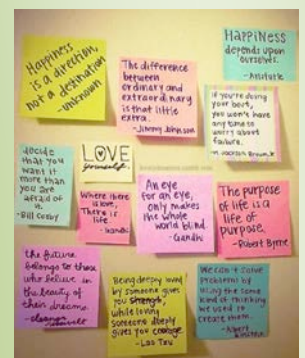 Happiness
is a direction
not a destination
-unknown
The difference
between
ordinary and
extraordinary
is that little
extra.
-Jimmy Johnson
HAPPINESS
depends upon
ourselves.
-Aristotle
If you're doing
your best,
you won't have
any time to
worry about
failure.
decide
that you
want it
more than
you are
afraid of
it.
-Bill Cosby
LOVE
yourself.
Where there
is love,
There is
life
-Gandhi
An eye
for an eye,
only makes
the whole
world blind.
-Gandhi
The purpose
of life is a
life of
purpose.
-Robert Byrne
the future
belongs to those
who believe in
the beauty of
their dreams.
-eleanor
roosevelt
Being deeply loved
by someone gives
you strength,
while loving
someone deeply
gives you courage
-Lao Tzu
We can't solve
problems by
using the same
kind of thinking
we used to
create them.
-Albert
Einstein